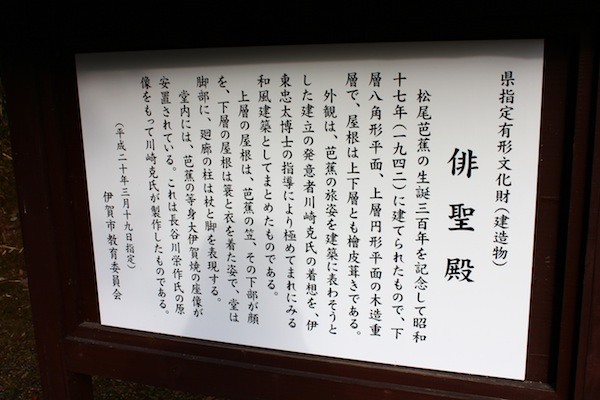 県指定有形文化財(建造物)
俳聖殿
松尾芭蕉の生誕三百年を記念して昭和
十七年(一九四二)に建てられたもので、下
層八角形平面、上層円形平面の木造重
層で、屋根は上下層とも檜皮葺きである。
外観は、芭蕉の旅姿を建築に表わそうと
した建立の発意者川崎克氏の着想を、伊
東忠太博士の指導により極めてまれにみる
和風建築としてまとめたものである。
上層の屋根は、芭蕉の笠、その下部が顔
を、下層の屋根は簑と衣を着た姿で、堂は
脚部に、廻廊の柱は杖と脚を表現する。
堂内には、芭蕉の等身大伊賀焼の座像が
安置されている。これは長谷川栄作氏の原
像をもって川崎克氏が製作したものである。
(平成二十年三月十九日指定)
伊賀市教育委員会